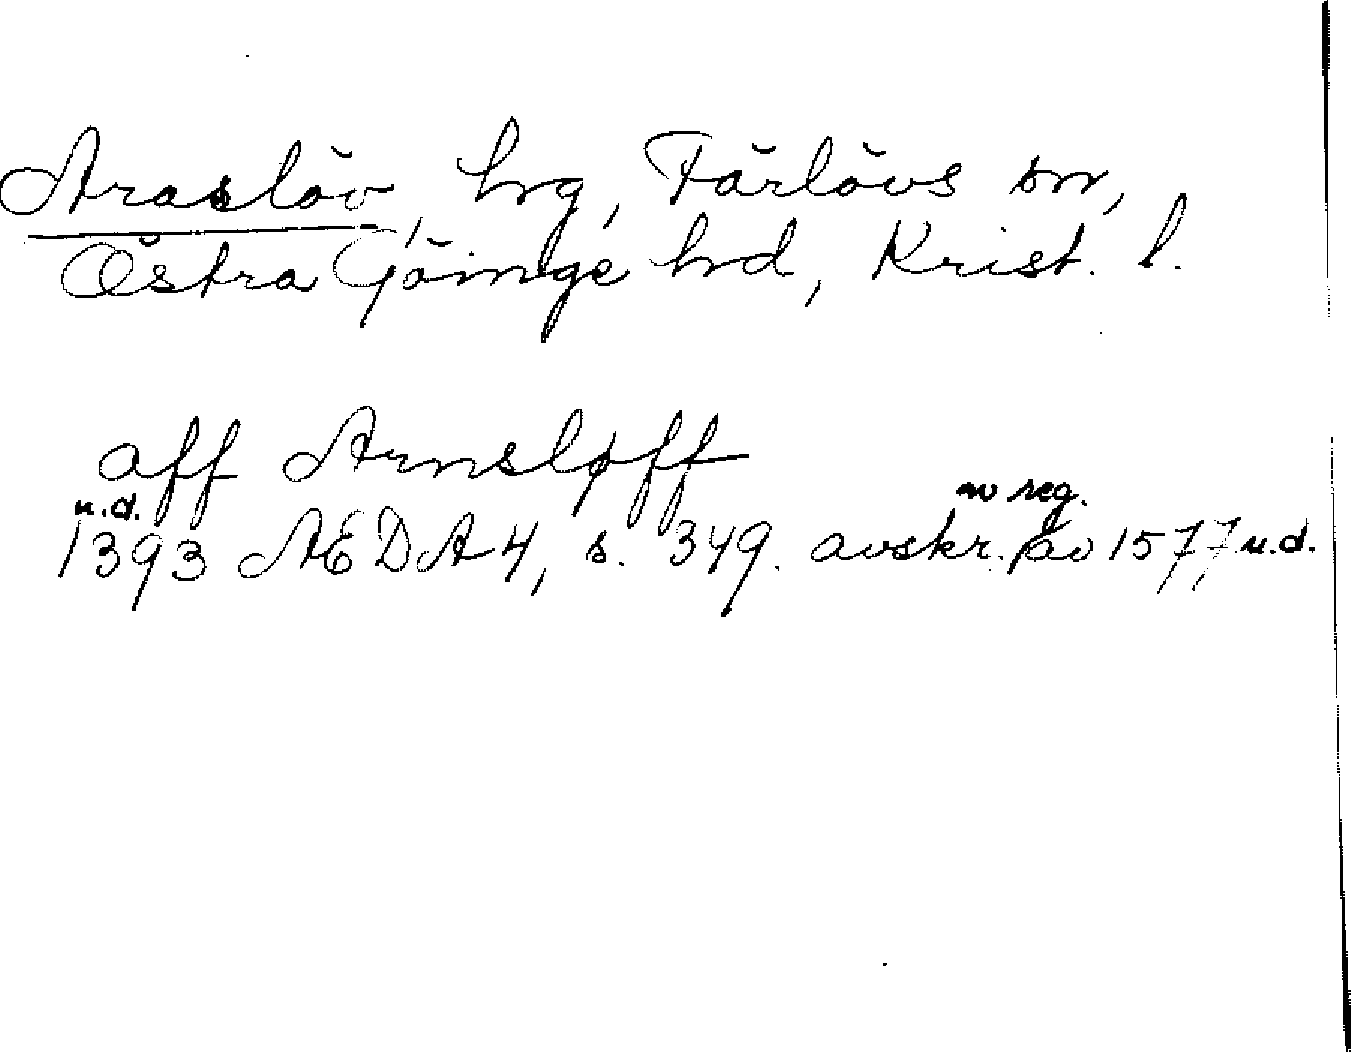 Araslöv, hrg, Färlövs sn,
Östra Göinge hrd, Krist. l.
aff Arnsløff
u.d. av reg.
1393 AEDA 4, s. 349. avskr. av 1577, u.d.